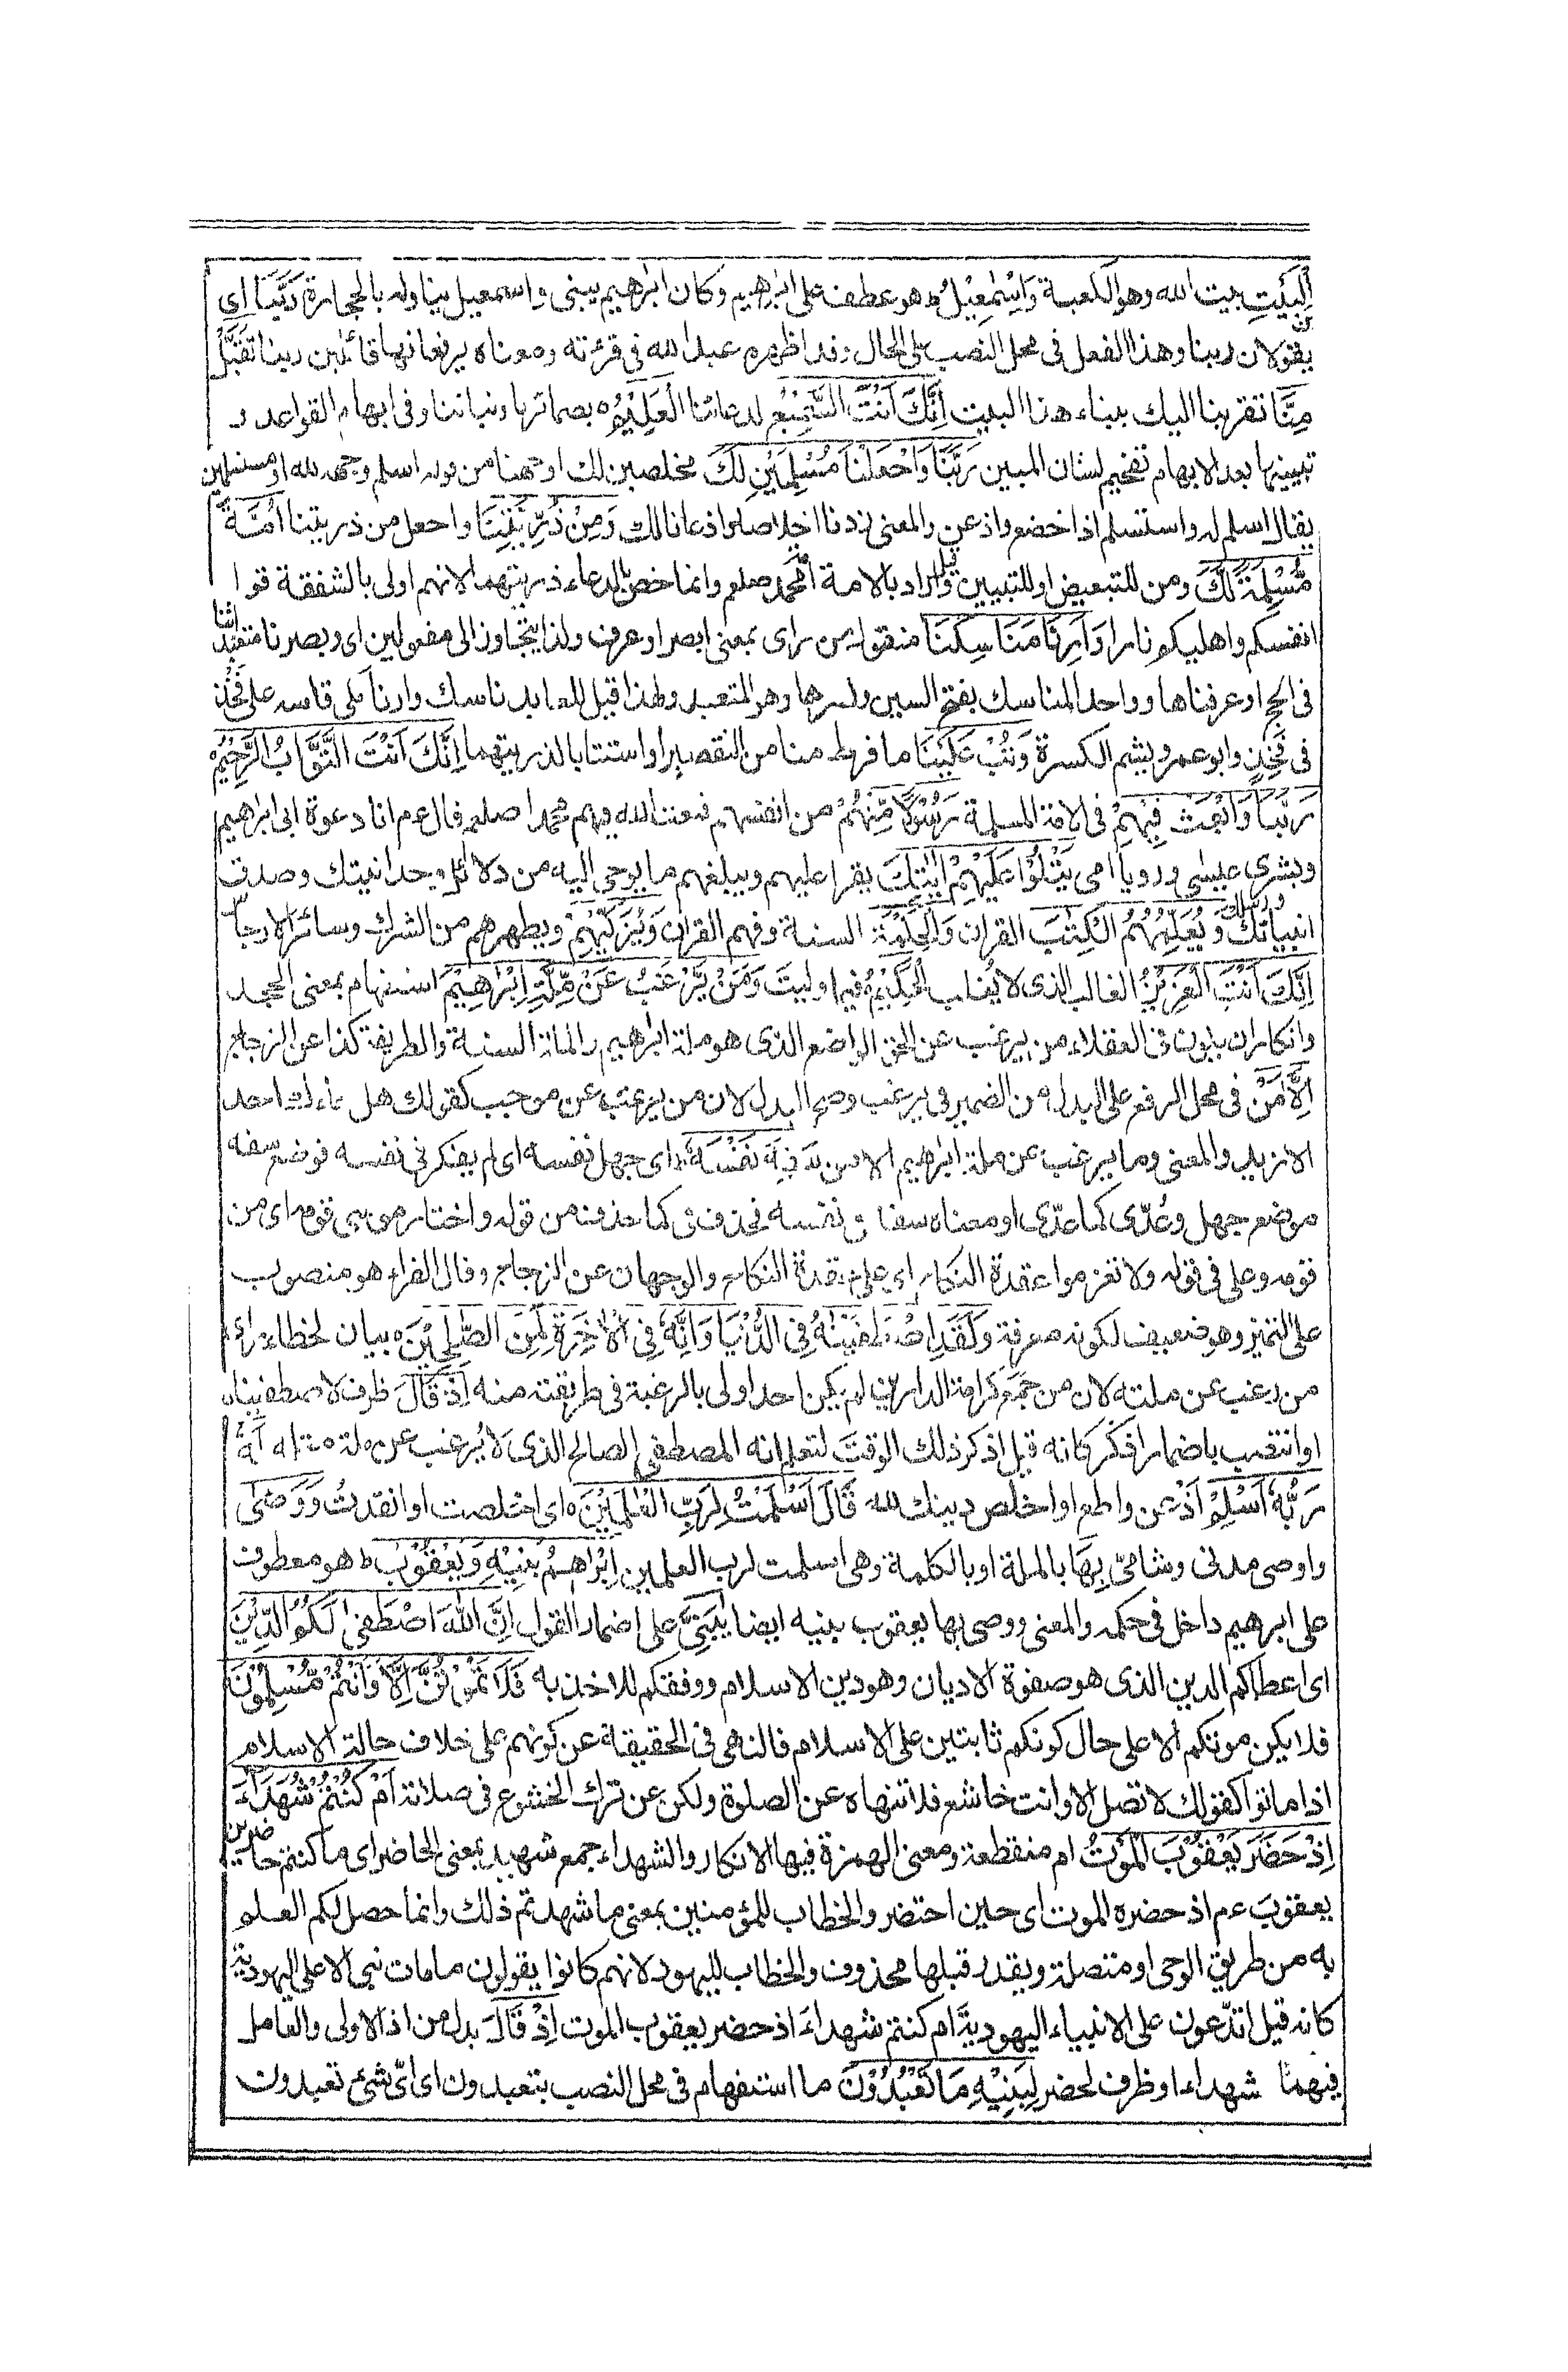 اَلْبَيْتِ بيت الله وهو الكعبة وَاِسْمٰعِيْلُ ط هو عطف على ابرهيم وكان ابرهيم يبنى واسمعيل يناوله بالحجارة رَبَّنَا اى
يقولان ربنا وهذا الفعل فى محل النصب على الحال وقد اظهره عبد الله فى قرءته ومعناه يرفعانها قائلين ربنا تَقَبَّلْ
مِنَّا تقربنا اليك ببناء هذا البيت اِنَّكَ اَنْتَ السَّمِيْعُ لدعائنا الْعَلِيْمُ ه بضمائرنا ونياتنا وفى ابهام القواعد و
تبيينها بعد الابهام تفخيم لشان المبين رَبَّنَا وَاجْعَلْنَا مُسْلِمَيْنِ لَكَ مخلصين لك اوجهنا من قوله اسلم وجهه لله او مستسلمين
يقال اسلم له واستسلم اذا خضع واذعن والمعنى زدنا اخلاصا واذعانا لك وَمِنْ ذُرِّيَّتِنَا واجعل من ذريتنا اُمَّةً
مُّسْلِمَةً لَّكَ ومن للتبعيض او للتبيين وقيل اراد بالامة امة محمد صلعم وانما خص بالدعاء ذريتهما لانهم اولى بالشفقة قوا
انفسكم واهليكم نارا وَاَرِنَا مَنَاسِكَنَا منقول من راى بمعنى ابصر او عرف ولذا لم يتجاوز الى مفعولين اى وبصرنا متعبداتنا
فى الحج او عرفناها وواحد المناسك بفتح السين وكسرها وهو المتعبد ولهذا قيل للعابد ناسك وارنا مكى قاسه على فَخْذ
فى فَخِذٍ وابو عمرو يشم الكسرة وَتُبْ عَلَيْنَا ما فرط منا من التقصير او استتابا لذريتهما اِنَّكَ اَنْتَ التَّوَّابُ الرَّحِيْمُ ه
رَبَّنَا وَابْعَثْ فِيْهِمْ فى الامة المسلمة رَسُوْلًا مِّنْهُمْ من انفسهم فبعث الله فيهم محمدا صلعم قال عم انا دعوة ابى ابرهيم
وبشرى عيسى ورويا امى يَتْلُوْا عَلَيْهِمْ اٰيٰتِكَ يقرا عليهم ويبلغهم ما يوحى اليه من دلائل وحدانيتك وصدق
انبيائك ورسلك وَيُعَلِّمُهُمُ الْكِتٰبَ القران وَالْحِكْمَةَ السنة وفهم القران وَيُزَكِّيْهِمْ ويطهرهم من الشرك وسائر الارجاس
اِنَّكَ اَنْتَ الْعَزِيْزُ الغالب الذى لا يُغلب الْحَكِيْمُ ه فيما اوليتَ وَمَنْ يَّرْغَبُ عَنْ مِّلَّةِ اِبْرٰهِيْمَ استفهام بمعنى الجحد
وانكار ان يكون فى العقلاء من يرغب عن الحق الواضح الذى هو ملة ابرهيم والملة السنة والطريقة كذا عن الزجاج
اِلَّا مَنْ فى محل الرفع على البدل من الضمير فى يرغب وصح البدل لان من يرغب غير موجب كقولك هل جاءك احد
الا زيد والمعنى وما يرغب عن ملة ابرهيم الا من سَفِهَ نَفْسَهٗ ط اى جهل نفسه اى لم يفكر فى نفسه فوضع سفه
موضع جهل وعُدّى كما عدّى او معناه سفه فى نفسه فحذف فى كما حذف من من قوله واختار موسى قومه اى من
قومه وعلى فى قوله ولا تعزموا عقدة النكاح اى على عقدة النكاح والوجهان عن الزجاج وقال الفراء هو منصوب
على التميز وهو ضعيف لكونه معرفة وَلَقَدِ اصْطَفَيْنٰهُ فِى الدُّنْيَا وَاِنَّهٗ فِى الْاٰخِرَةِ لَمِنَ الصّٰلِحِيْنَ ه بيان لخطاء راى
من رغب عن ملته لان من جمع كرامة الدارين لم يكن احد اولى بالرغبة فى طريقته منه اِذْ قَالَ ظرف لاصطفيناه
او انتصب باضمار اذكر كانه قيل اذكر ذلك الوقت لتعلم انه المصطفى الصالح الذى لا يُرغب عن ملة مثله لَهٗ
رَبُّهٗ اَسْلِمْ اَذْعن واطع او اخلص دينك لله قَالَ اَسْلَمْتُ لِرَبِّ الْعٰلَمِيْنَ ه اى اخلصت او انقدتُ وَوَصّٰى
واوصى مدنى وشامىّ بِهَا بالملة او بالكلمة وهى اسلمت لرب العلمين اِبْرٰهِمُ بَنِيْهِ وَيَعْقُوْبُ ط هو معطوف
على ابرهيم داخل فى حكمه والمعنى ووصى بها يعقوب بنيه ايضا يٰبَنِىَّ على اضمار القول اِنَّ اللّٰهَ اصْطَفٰى لَكُمُ الدِّيْنَ
اى اعطاكم الدين الذى هو صفوة الاديان وهو دين الاسلام ووفقكم للاخذ به فَلَا تَمُوْتُنَّ اِلَّا وَاَنْتُمْ مُّسْلِمُوْنَ
فلا يكن موتكم الا على حال كونكم ثابتين على الاسلام فالنهى فى الحقيقة عن كونهم على خلاف حالة الاسلام
اذا ماتوا كقولك لا تصل الا وانت خاشع فلا تنهاه عن الصلوة ولكن عن ترك الخشوع فى صلاته اَمْ كُنْتُمْ شُهَدَآءَ
اِذْ حَضَرَ يَعْقُوْبَ الْمَوْتُ ام منقطعة ومعنى الهمزة فيها الانكار والشهداء جمع شهيد بمعنى الحاضر اى ما كنتم حاضرين
يعقوبَ عم اذ حضره الموت اى حين احتضر والخطاب للمؤمنين بمعنى ما شهدتم ذلك وانما حصل لكم العلم
به من طريق الوحى او متصلة ويقدر قبلها محذوف والخطاب لليهود لانهم كانوا يقولون ما مات نبى الا على اليهودية
كانه قيل اتدّعون على الانبياء اليهوديةَ ام كنتم شهداءَ اذ حضر يعقوب الموت اِذْ قَالَ بدل من اذ الاولى والعامل
فيهما شهداء او ظرف لحضر لِبَنِيْهِ مَا تَعْبُدُوْنَ ما استفهام فى محل النصب بتعبدون اى اىّ شىء تعبدون